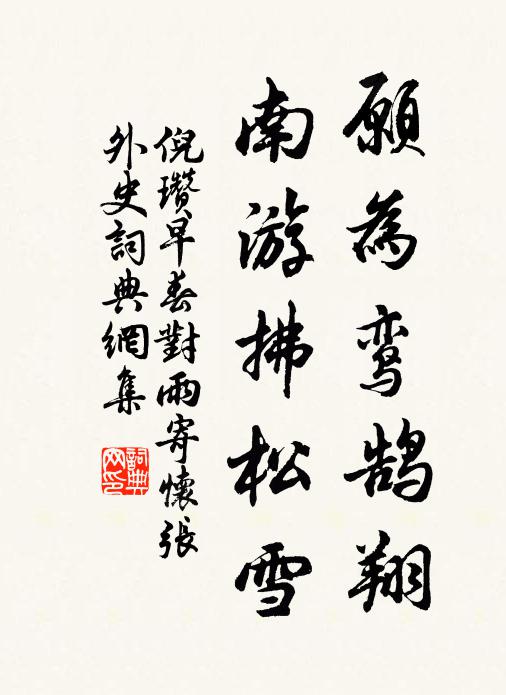 願為鸾鹄翔
南游拂松雪
倪瓚早春對雨寄懷張
外史詞典網集
詞典网印